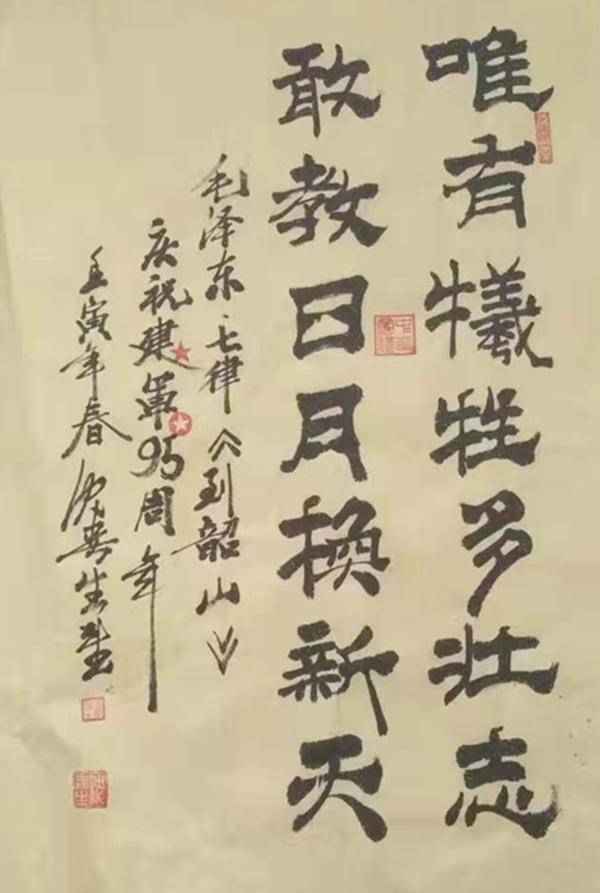 唯有犧牲多壮志
敢教日月换新天
毛泽东七律《到韶山》
庆祝建军95周年
壬寅年春